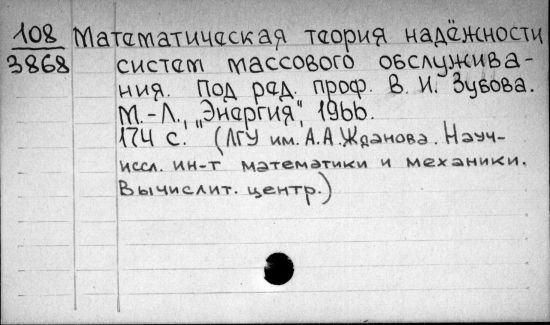 108 Математическая теория надёжности
3868 систем массового обслужива-
ния. Под ред. проф. В. И. Зубова.
М.-Л., „Энергия", 1966.
174 с. (ЛГУ им. А.А.Жданова. Науч-
иссл. ин-т математики и механики.
Вычислит. центр.)